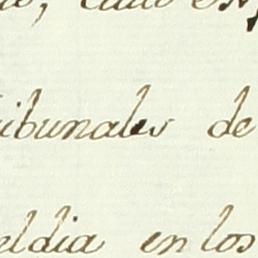 ribunales de
eldia en los